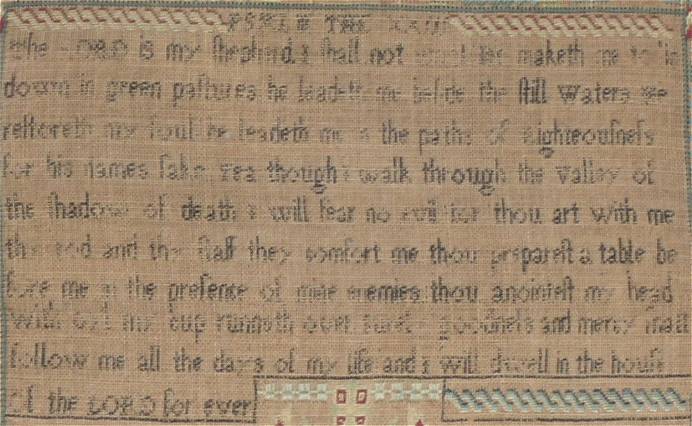 PSALM THE XXIII
the LORD is my ſhepherd i ſhall not want he maketh me to lie
down in green paſtures he leadeth me beſide the ſtill waters he
reſtoreth my ſoul he leadeth me in the paths of righteouſneſs
for his names ſake yea though i walk through the valley of
the ſhadow of death i will fear no evil for thou art with me
thy rod and thy ſtaff they comfort me thou prepareſt a table be
fore me in the preſence of mine enemies thou anointeſt my head
with oyl my cup runneth over surely goodneſs and mercy ſhall
follow me all the days of my life and i will dwell in the houſe
of the LORD for ever